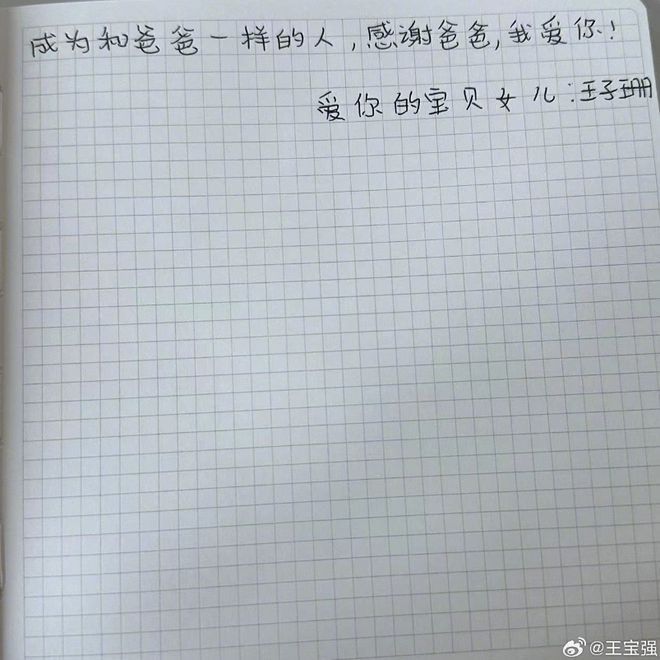 成为和爸爸一样的人,感谢爸爸,我爱你!
爱你的宝贝女儿:王子珊
@王宝强